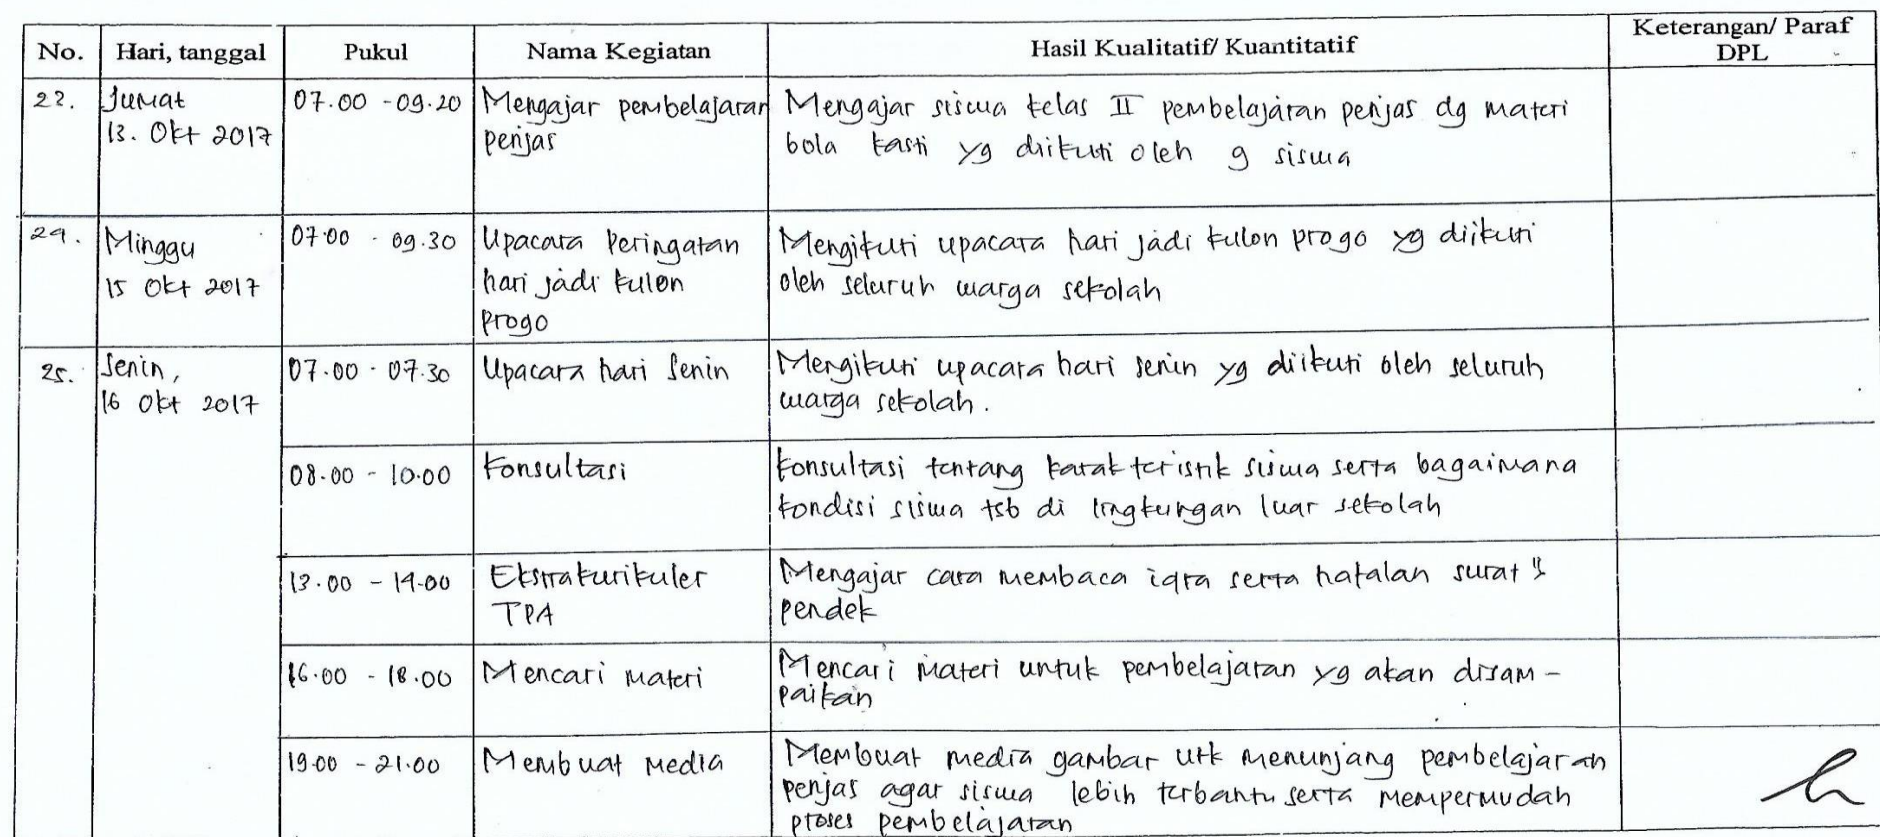 No. Hari, tanggal Pukul Nama Kegiatan Hasil Kualitatif/ Kuantitatif Keterangan/ Paraf
DPL
22. Jumat 07.00 - 09.20 Mengajar pembelajaran Mengajar siswa kelas II pembelajaran penjas dg materi
13. Okt 2017 penjas bola kasti yg diikuti oleh 9 siswa
24. Minggu 07.00 - 09.30 Upacara Peringatan Mengikuti upacara hari jadi kulon progo yg diikuti
15 Okt 2017 hari jadi kulon oleh seluruh warga sekolah
Progo
25. Senin, 07.00 - 07.30 Upacara hari Senin Mengikuti upacara hari senin yg diikuti oleh seluruh
16 Okt 2017 warga sekolah.
08.00 - 10.00 Konsultasi Konsultasi tentang karakteristik siswa serta bagaimana
kondisi siswa tsb di lingkungan luar sekolah
13.00 - 14.00 Ekstrakurikuler Mengajar cara membaca iqra serta hafalan surat "
TPA pendek
16.00 - 18.00 Mencari materi Mencari materi untuk pembelajaran yg akan disam -
paikan
19.00 - 21.00 Membuat Media Membuat media gambar utk menunjang pembelajaran
penjas agar siswa lebih terbantu serta mempermudah
proses pembelajaran